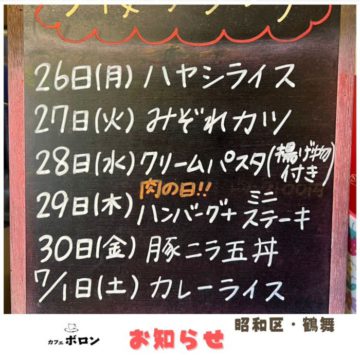 26日(月) ハヤシライス
27日(火) みぞれカツ
28日(水) クリームパスタ(揚げ物付き)
肉の日!!
29日(木) ハンバーグ+ミニステーキ
30日(金) 豚ニラ玉丼
7/1日(土) カレーライス
昭和区・鶴舞
カフェ ボロン お知らせ